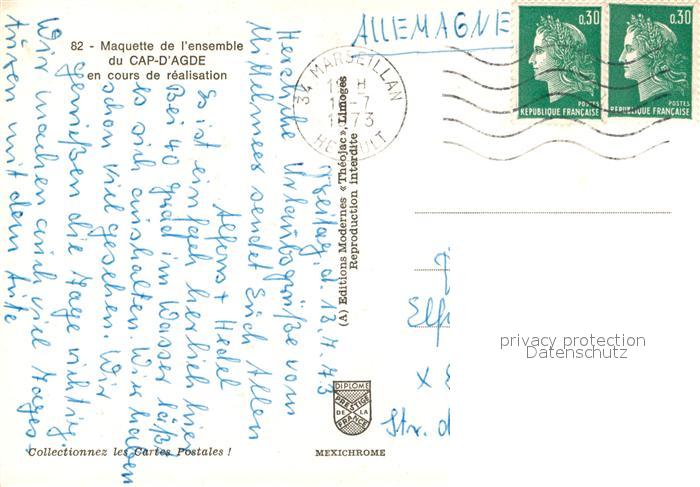 82 - Maquette de l'ensemble
du CAP-D'AGDE
en cours de réalisation
ALLEMAGNE
0.30
POSTES
REPUBLIQUE FRANÇAISE
0.30
POSTES
REPUBLIQUE FRANÇAISE
34 MARSEILLAN
H
-7
1973
HERAULT
Freitag, d. 13.7.73
Herzliche Urlaubsgrüße vom
Mittelmeer sendet Euch Allen
Alfons + Hedel
Es ist einfach herrlich hier
Bei 40 grad im Wasser läßt
es sich aushalten. Wir haben
schon viel gesehen. Wir
genießen die Tage richtig.
Wir machen auch viel Tages-
turen mit dem
(A) Editions Modernes «Théojac», Limoges
Reproduction interdite
DIPLOME
PRESTIGE
DE LA
FRANCE
Collectionnez les Cartes Postales !
MEXICHROME
Elf
X
Str. d
privacy protection
Datenschutz